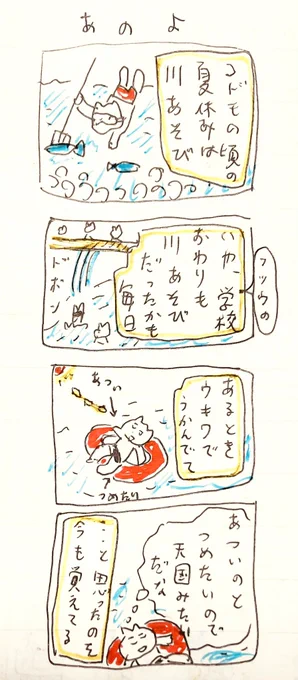 あのよ
コドモの頃の
夏休みは
川あそび
フツウの
いや、学校
おわりも
川あそび
だったかも
毎日
ドボン
あるとき
ウキワで
うかんでて
あつい
つめたい
あついのと
つめたいので
天国みたい
だな
…と思ったのを
今も覚えてる